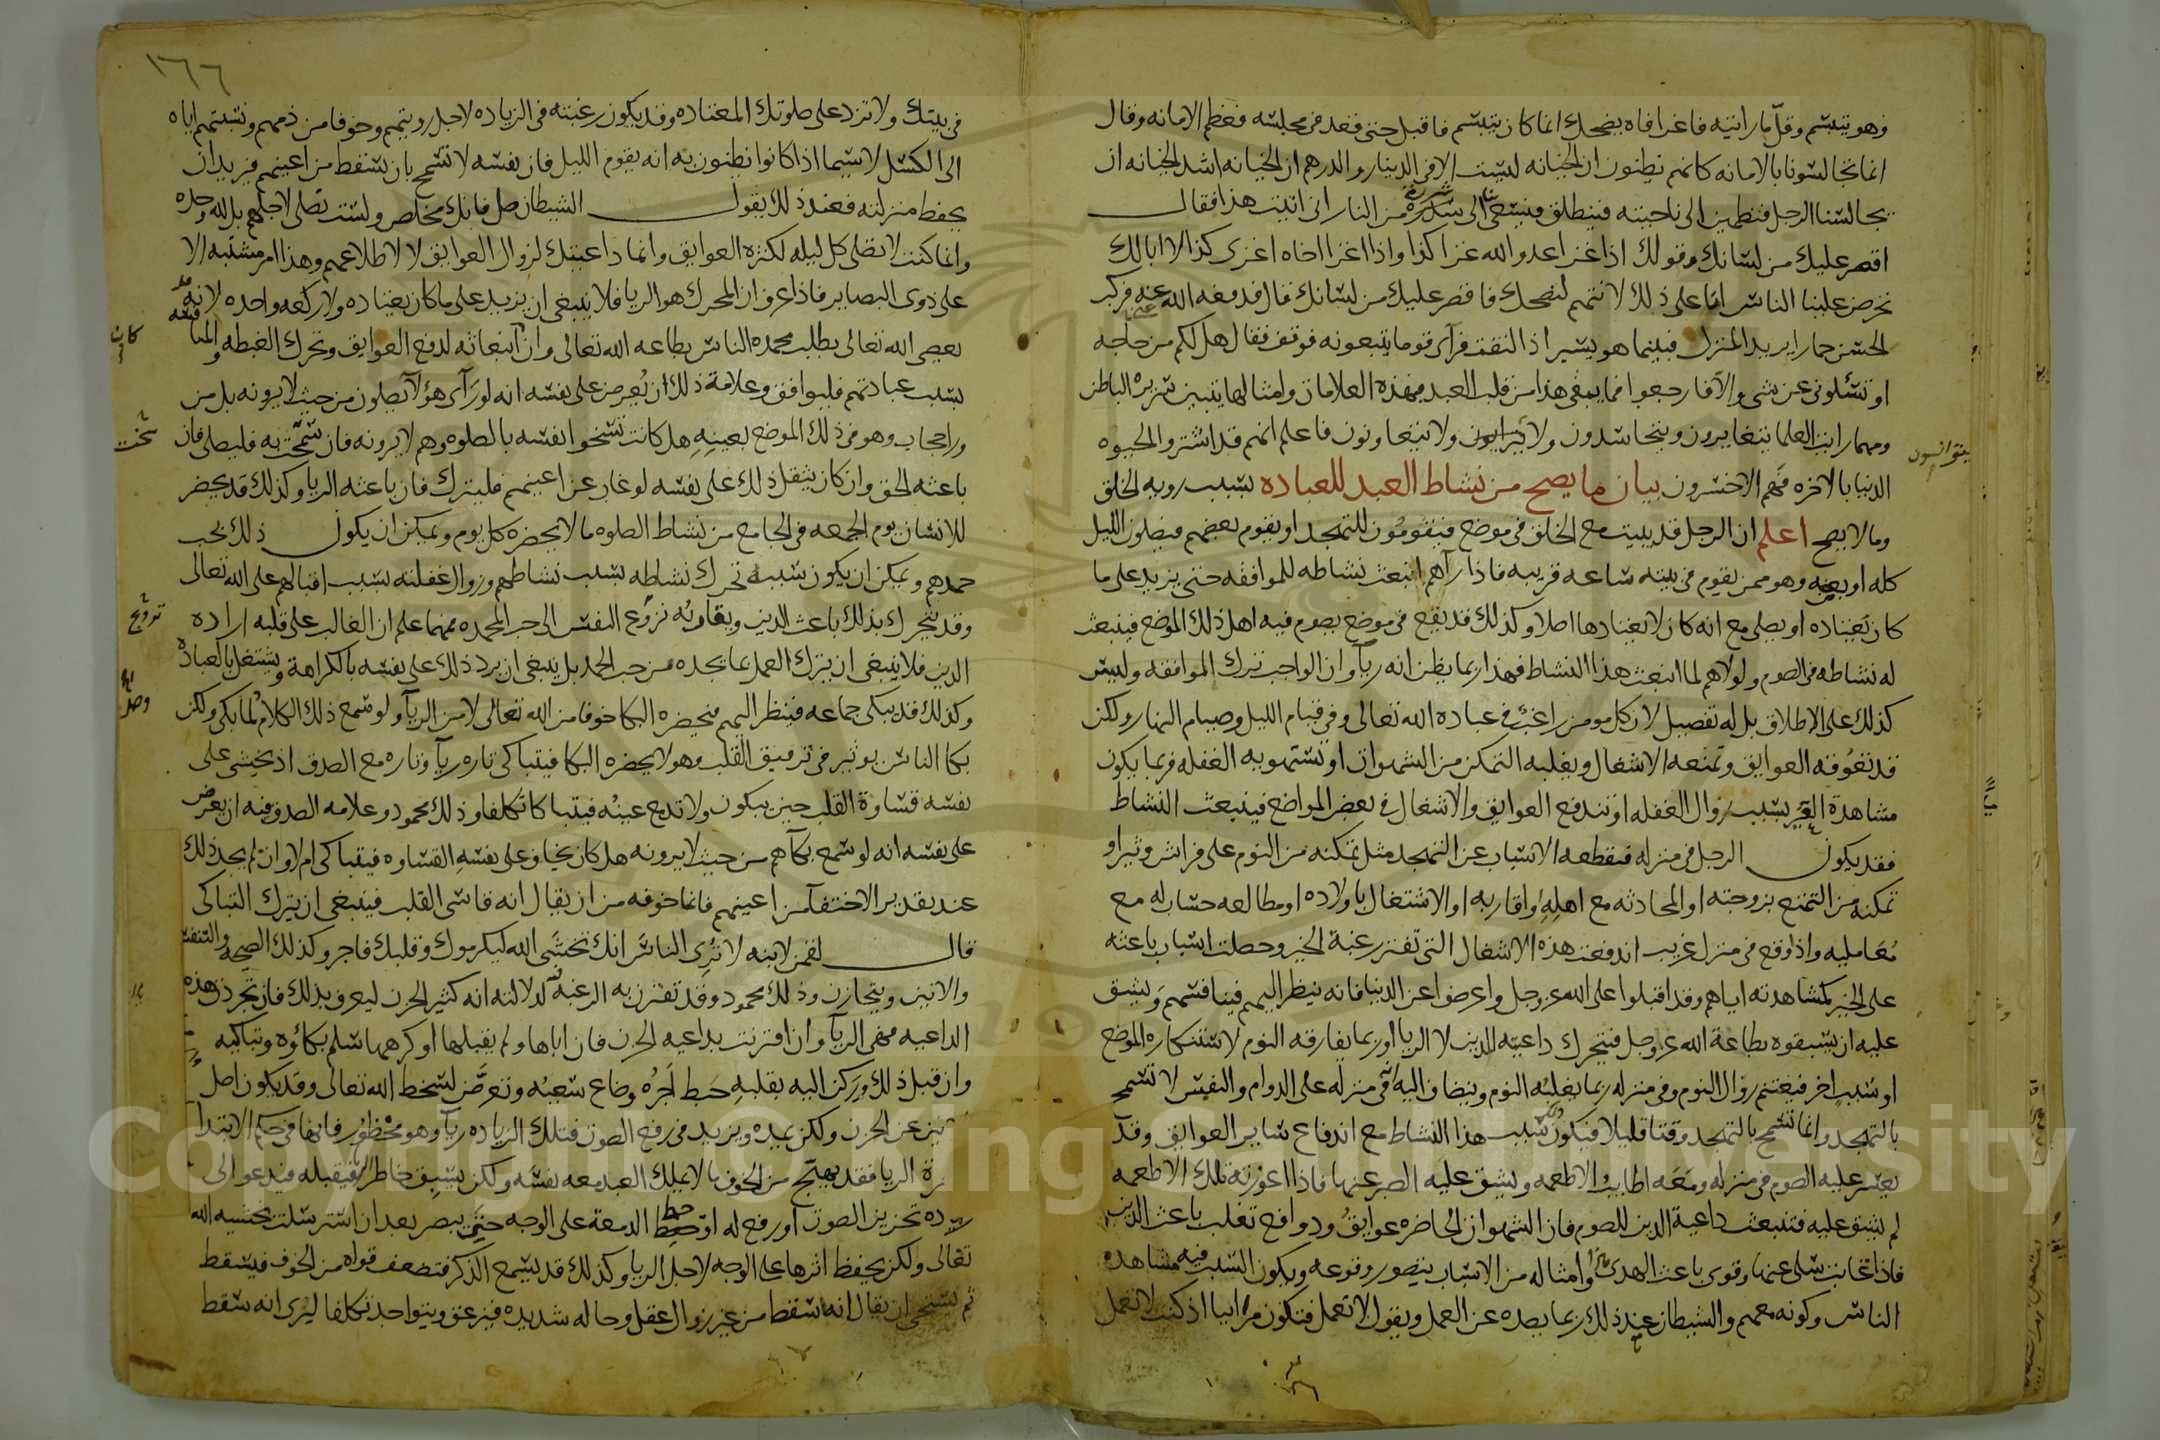 وهو يتبسم وقل ما رايته فاغرا فاه بضحك انما كان يتبسم فاقبل حتى قعد في مجلسه فعظم الامانه وقال
انما تجالسونا بالامانه كانهم يظنون ان الخيانه ليست الا في الدينار والدرهم ان الخيانه اشد الخيانه ان
يجالسنا الرجل فنطمئن الى ناحيته فينطلق فيسعى بنا الى شررة من النار انى اتيت هذا فقال
اقصر عليك من لسانك وقولك اذا غزا عدو الله غزا كذا واذا اغزا اخاه اغزى كذا لا ابالك
تحرض علينا الناس اما على ذلك لا نتهم لنصحك فاقصر عليك من لسانك قال فدفعه الله عنه فركب
الحسن حمارا يريد المنزل فبينما هو يسير اذ التفت فرآى قوما يتبعونه فوقف فقال هل لكم من حاجه
او تسئلوني عن شى والا فارجعوا فما يبقى هذا من قلب العبد فبهذه العلامات وامثالها يتبين سريره الباطن
ومهما رايت العلما يتغايرون ويتحاسدون ولا ولا يتعاونون فاعلم انهم قد اشتروا الحيوه
الدنيا بالاخره فهم الاخسرون بيان ما يصح من نشاط العبد للعباده بسبب رويه الخلق
وما لا يصح اعلم ان الرجل قد يبيت مع الخلق في موضع فيقومون للتهجد او يقوم بعضهم فيصلون الليل
كله او بعضه وهو ممن يقوم في بيته ساعه قريبه فاذا رآهم انبعث نشاطه للموافقه حتى يزيد على ما
كان يعتاده او يصلى مع انه كان لا يعتادها اصلا وكذلك قد يقع في موضع يصوم فيه اهل ذلك الموضع فينبعث
له نشاطه في الصوم ولولاهم لما انبعث هذا النشاط فهذا ربما يظن انه رياآ وان الواجب ترك الموافقه وليس
كذلك على الاطلاق بل له تفصيل لان كل مومن راغب في عباده الله تعالى وفي قيام الليل وصيام النهار ولكن
قد تعوقه العوايق وتمنعه الاشغال ويغلبه التمكن من الشهوات او تستهويه الغفله فربما يكون
مشاهدة الغير بسبب زوال الغفله او تندفع العوايق والاشغال في بعض المواضع فينبعث النشاط
فقد يكون الرجل في منزله فتقطعه الاسباب عن التهجد مثل تمكنه من النوم على فراش وثير او
تمكنه من التمتع بزوجته او المحادثه مع اهله واقاربه او الاشتغال باولاده او مطالعه حساب له مع
معامليه واذا وقع في منزل غريب اندفعت هذه الاشغال التى تفتر رغبة الخير وحصلت اسباب باعثه
على الخير كمشاهدته اياهم وقد اقبلوا على الله عز وجل واعرضوا عن الدنيا فانه ينظر اليهم فينافسهم ويشق
عليه ان يسبقوه بطاعة الله عز وجل فيتحرك داعيه الدين لا الريا او ربما يفارقه النوم لاستنكاره الموضع
او سبب اخر فيغتنم زوال النوم وفي منزله ربما يغلبه النوم وينضاف اليه انه في منزله على الدوام والنفس لا تسمح
بالتهجد وانما تسمح بالتهجد وقتا قليلا فيكون ذلك سبب هذا النشاط مع اندفاع ساير العوايق وقد
يعسر عليه الصوم في منزله ومعه اطايب الاطعمه ويشق عليه الصبر عنها فاذا اعوزته تلك الاطعمه
لم يشق عليه فتنبعث داعية الدين للصوم فان الشهوات الحاضره عوايق ودوافع تغلب باعث الدين
فاذا غابت سلى عنها وقوى باعث الهدى فهذا وامثاله من الاسباب يتصور وقوعه ويكون السبب فيه مشاهده
الناس وكونه معهم والشيطان عند ذلك ربما يصده عن العمل ويقول لا تعمل فتكون مرايا اذ كنت لا تعمل
يتوانسون
١٦٦
في بيتك ولا تزد على صلوتك المعتاده وقد يكون رغبته في الزياده لاجل رويتهم وخوفا من ذمهم ونسبتهم اياه
الى الكسل لاسيما اذا كانوا يظنون به انه يقوم الليل فان نفسه لا تسمح بان يسقط من اعينهم فيريد ان
يحفظ منزلته فعند ذلك يقول الشيطان صل فانك مخلص ولست تصلى لاجلهم بل لله وحده
وانما كنت لا تصلى كل ليله لكثره العوايق وانما داعيتك لزوال العوايق لا لاطلاعهم وهذا امر مشتبه الا
على ذوى البصاير فاذا عرف ان المحرك هو الريا فلا ينبغى ان يزيد على ما كان يعتاده ولا ركعه واحده لانه
يعصى الله تعالى بطلب محمده الناس بطاعه الله تعالى وان كان انبعاثه لدفع العوايق وتحرك الغبطه والمنافسه
بسبب عبادتهم فليوافق وعلامة ذلك ان يعرض على نفسه انه لو رآى هؤلآ يصلون من حيث لا يرونه بل من
ورا حجاب وهو في ذلك الموضع بعينه هل كانت تسخوا نفسه بالصلوه وهم لا يرونه فان سمحت به فليصل فان
باعثه الحق وان كان يثقل ذلك على نفسه لو غاب عن اعينهم فليترك فان باعثه الريا وكذلك قد يحضر
للانسان يوم الجمعه في الجامع من نشاط الصلوه ما لا يحضره كل يوم ويمكن ان يكون ذلك لحب
حمدهم ويمكن ان يكون سبب تحرك نشاطه بسبب نشاطهم وزوال غفلته بسبب اقبالهم على الله تعالى
وقد يتحرك بذلك باعث الدين ويقارنه نزوع النفس الى حب المحمده فمهما علم ان الغالب على قلبه اراده
الدين فلا ينبغى ان يترك العمل بما يجده من حب الحمد بل ينبغى ان يرد ذلك على نفسه بالكراهة ويشتغل بالعباده
وكذلك قد يبكى جماعه فينظر اليهم فيحضره البكا خوفا من الله تعالى لا من الريآ ولو سمع ذلك الكلام لما بكى ولكن
بكا الناس يوثر في ترقيق القلب وهو لا يحضره البكا فيتباكى تاره ريآ وتاره مع الصدق اذ يخشى على
نفسه قساوة القلب حين يبكون ولا تدمع عينه فيتباكا تكلفا وذلك محمود وعلامه الصدق فيه ان يعرض
على نفسه انه لو سمع بكآهم من حيث لا يرونه هل كان يخاف على نفسه القساوه فيتباكى ام لا وان لم يجد ذلك
عند تقدير الاختفآ من اعينهم فانما خوفه من ان يقال انه قاسى القلب فينبغى ان يترك التباكى
قال لقمن لابنه لا تري الناس انك تخشى الله ليكرموك وقلبك فاجر وكذلك الصيحه والتنفس
والانين ويتحازن وذلك محمود وقد تقترن به الرغبه فيه لدلالته انه كثير الحزن ليعرف بذلك فان تجردت هذه
الداعيه فهى الريآ وان اقترنت بداعيه الحزن فان اباها ولم يقبلها او كرهها سلم بكاؤه وتباكيه
وان قبل ذلك وركن اليه بقلبه حبط اجره وضاع سعيه وتعرض لسخط الله تعالى وقد يكون اصل
عن الحزن ولكن يمده ويزيد في رفع الصوت فتلك الزياده ريآ وهو محظور فانها في حكم الابتدا
الريا فقد يهيج من الخوف ما لا يملك العبد معه نفسه ولكن يسبق خاطر الريا فيقبله فيدعو الى
تحزين الصوت او رفع له او حفظ الدمعة على الوجه حتى يبصر بعد ان استرسلت لخشيه الله
تعالى ولكن يحفظ اثرها على الوجه لاجل الريا وكذلك قد يسمع الذكر فتضعف قواه من الخوف فيسقط
ثم يستحى ان يقال انه سقط من غير زوال عقل وحاله شديده فيزعق ويتواجد تكلفا ليرى انه سقط